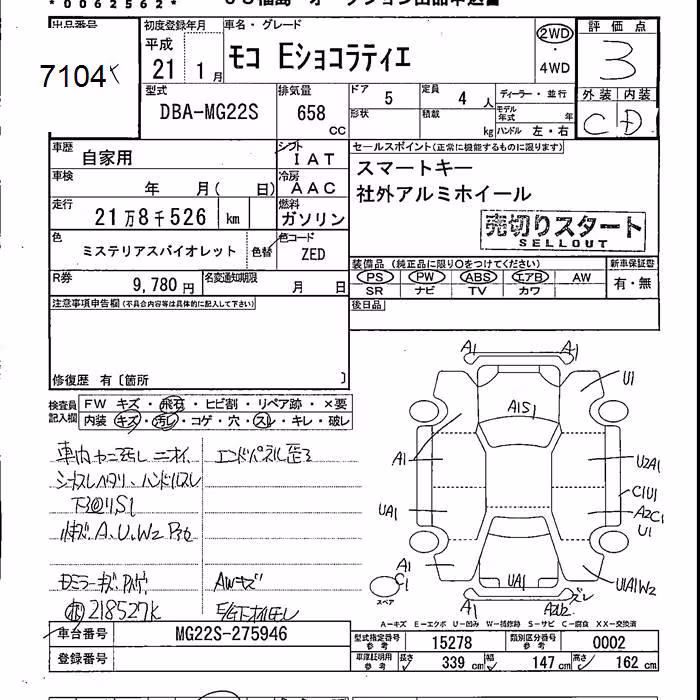 * 0 0 6 2 5 6 2 *
出品番号
7104
初度登録年月
平成
21 1月
車名・グレード
モコ Eショコラティエ
2WD
・
4WD
評価点
3
外装 内装
C D
型式
DBA-MG22S
排気量
658
CC
ドア
5
形状
定員
4 人
積載
kg
ディーラー・並行
モデル年式 年
ハンドル 左・右
車歴
自家用
シフト
IAT
車検
年 月( 日)
冷房
AAC
走行
21万8千526 km
燃料
ガソリン
色
ミステリアスバイオレット
色替
色コード
ZED
R券
9,780円
名変通知期限
月 日
セールスポイント(正常に機能するものに限ります)
スマートキー
社外アルミホイール
売切りスタート
SELLOUT
装備品(純正品に限り○をつけてください)
PS PW ABS エアB AW
SR ナビ TV カワ
新車保証書
有・無
後日品
注意事項申告欄(不具合内容等は具体的に記入して下さい)
修復歴 有〔箇所 〕
検査員記入欄
FW キズ・飛石・ヒビ割・リペア跡・×要
内装 キズ・汚レ・コゲ・穴・スレ・キレ・破レ
車内ヤニ汚レ ニオイ
エンドパネル歪ミ
シートスレ ヘタリ、ハンドルスレ
下回りS1
小キズ A、U、W2 P多
AWキズ
218527K
A1 A1
U1
A1S1
A1
U2A1
C1U1
UA1
A2C1
U1
A1
C1
スペア
UA1
U1A1W2
A2U2 ズレ
A-キズ E-エクボ U-凹み W-補修跡 S-サビ C-腐食 XX-交換済
車台番号
MG22S-275946
登録番号
型式指定番号 参考
15278
類別区分番号 参考
0002
車庫証明用 参考
長さ 339 cm 幅 147 cm 高さ 162 cm